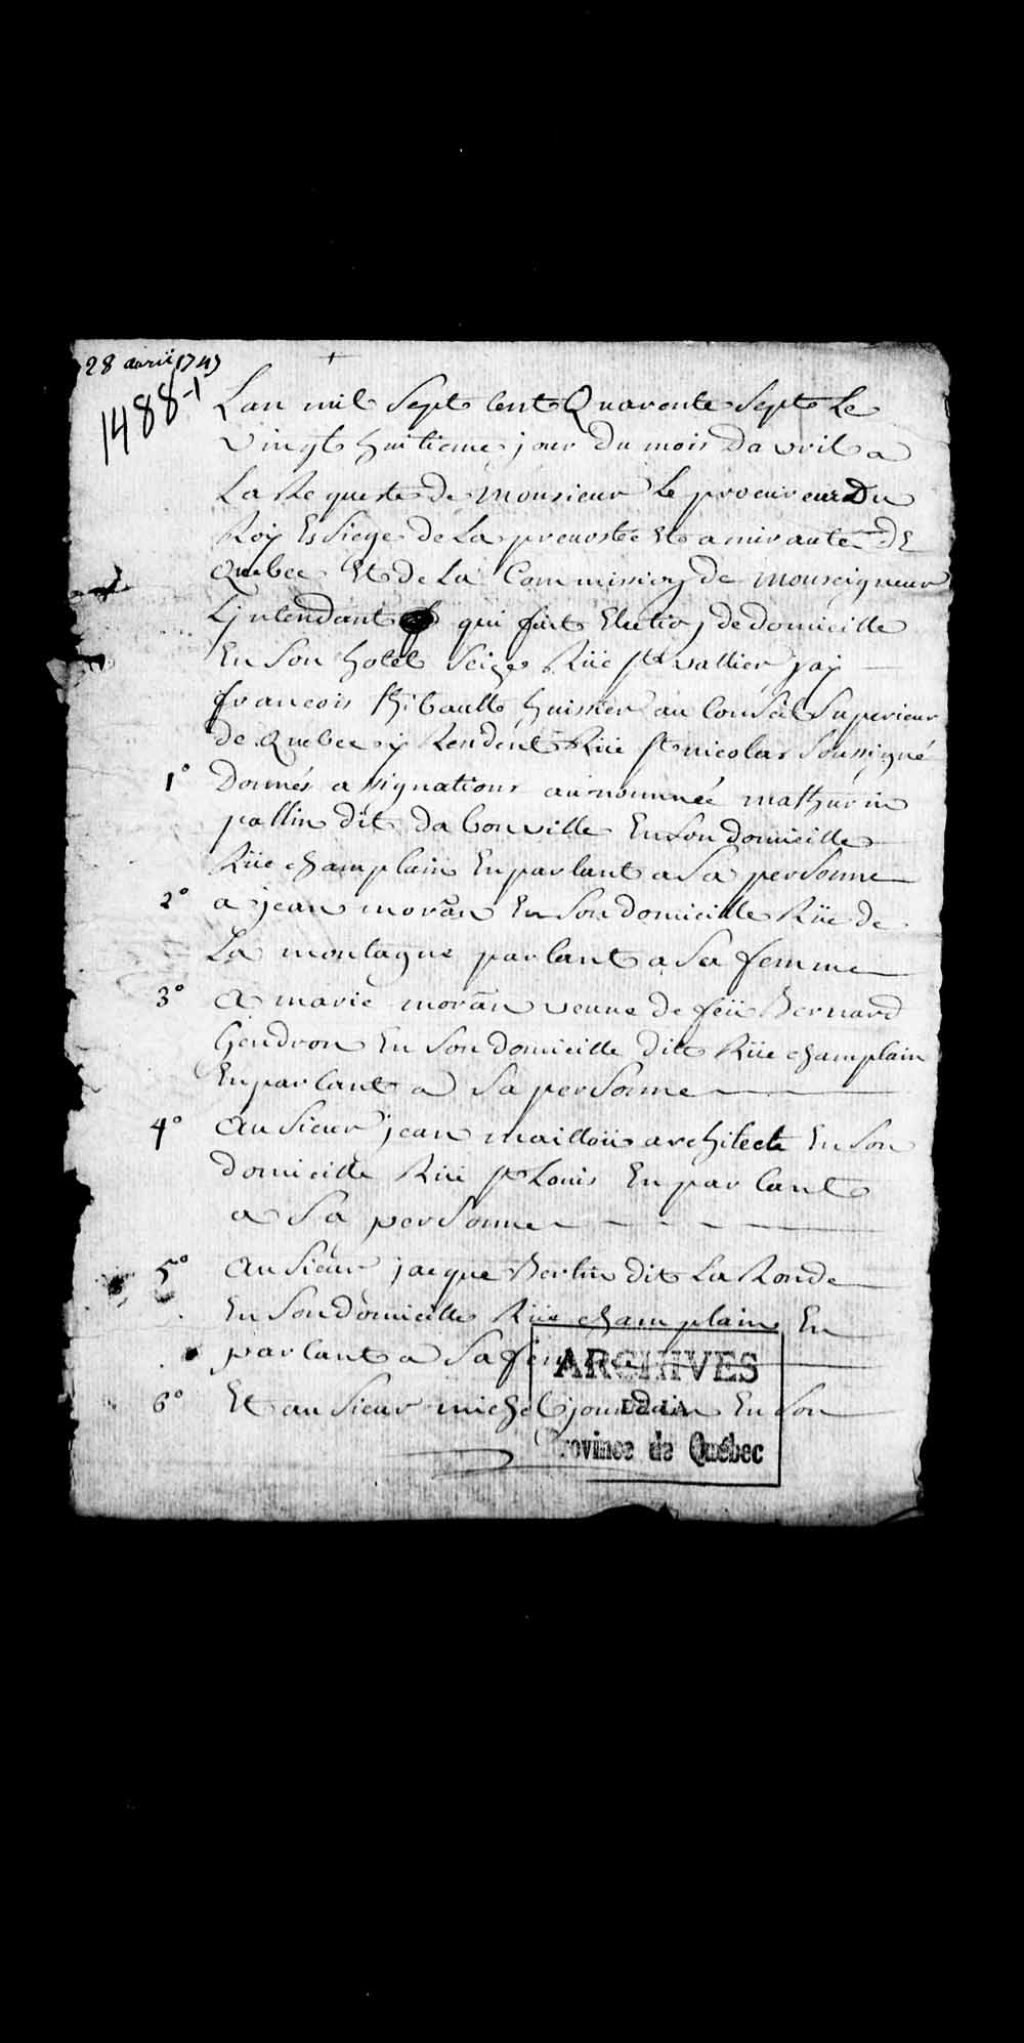 28 avril 1747
1488-1
Lan mil Sept Cent Quarente Sept Le
vingt huitieme jour du mois davril a
La Requeste de Monsieur Le procureur Du
Roy Es Siege de La prevostée Et amirauté DE
Quebec Et de La Commission de Monseigneur
Lintendant qui fait Election de domicille
En Son hotel Seize Rüe St vallier jay
francois thibault huissier au Conseil Superieur
de Quebec y Rendent Rüe St nicolas Soussigné
1° Donnés assignations au nommée mathurin
pallin dit dabonville En Son domicille
Rüe champlain En parlant a Sa personne
2° a jean moran En Son domicille Rüe de
La montagne parlant a Sa femme
3° a marie moran veuve de feü Bernard
Gendron En Son domicille dit Rüe champlain
En parlant a Sa personne
4° au Sieur jean mailloü architecte En Son
domicille Rüe St Louis En parlant
a Sa personne
5° au Sieur jacque Berlin dit La Ronde
En Son domicille Rüe champlain En
parlant a Sa femme
6° Et au Sieur michel jourdain En Son
ARCHIVES
DE LA
Province de Québec